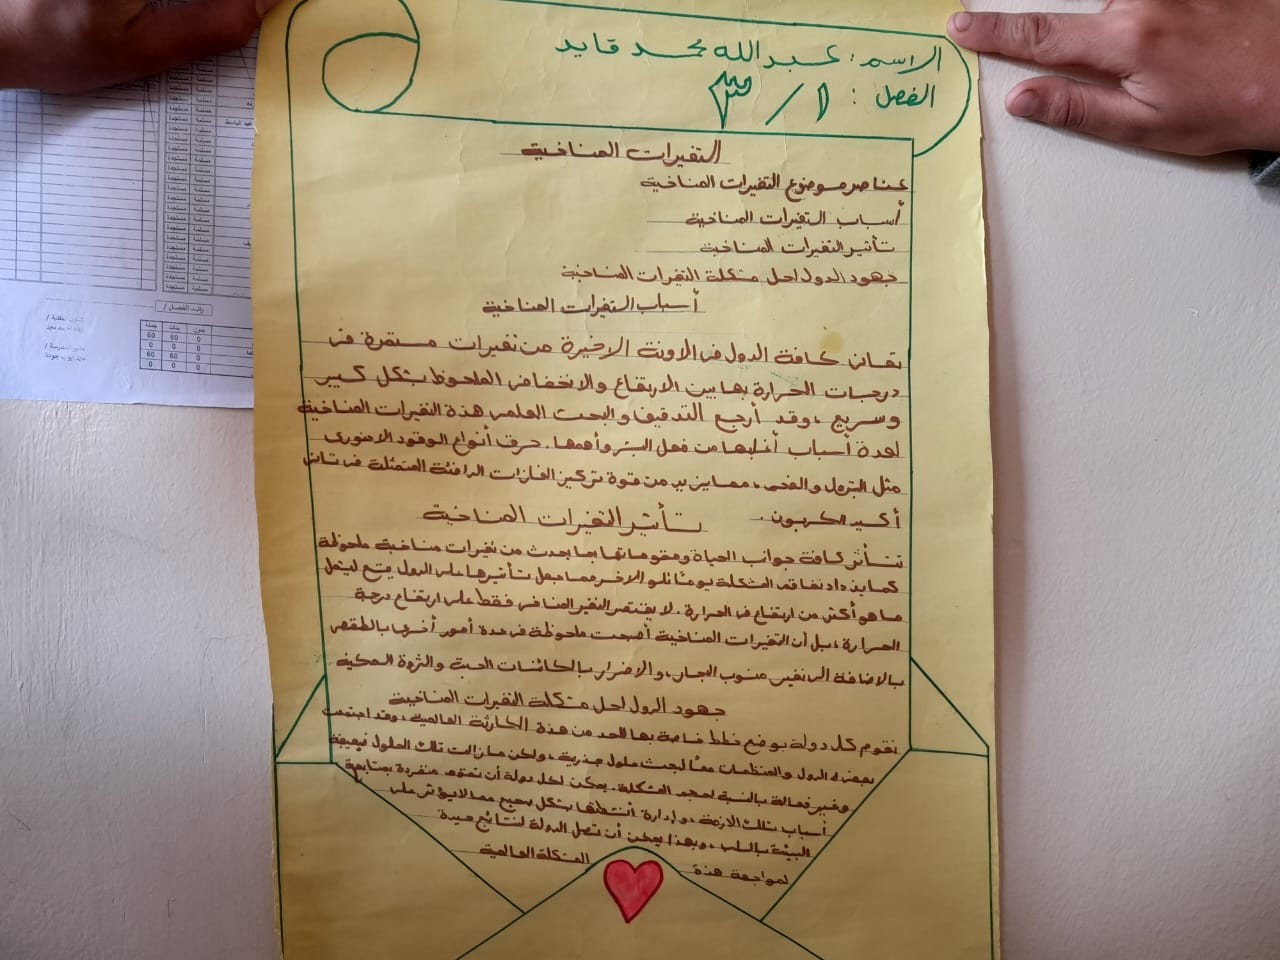 الاسم: عبد الله محمد قايد
الفصل: ١/٣
التغيرات المناخية
عناصر موضوع التغيرات المناخية
أسباب التغيرات المناخية
تأثير التغيرات المناخية
جهود الدول لحل مشكلة التغيرات المناخية
أسباب التغيرات المناخية
تعانى كافة الدول فى الاونة الاخيرة من تغيرات مستمرة فى
درجات الحرارة بها بين الارتفاع والانخفاض الملحوظ بشكل كبير
وسريع ، وقد أرجع التدقيق والبحث العلمى هذة التغيرات المناخية
لعدة أسباب أغلبها من فعل البشر وأهمها . حرف أنواع الوقود الاحفورى
مثل البترول والفحم ، مما يزيد من قوة تركيز الغازات الدافئة المتمثلة فى ثانى
أكسيد الكربون .
تأثير التغيرات المناخية
تتأثر كافة جوانب الحياة ومقوماتها بما يحدث من تغيرات مناخية ملحوظة
كما يزداد تفاقم المشكلة يومًا تلو الاخر مما جعل تأثيرها على الدول يتسع ليشمل
ما هو أكثر من ارتفاع فى الحرارة . لا يقتصر التغير المناخى فقط على ارتفاع درجة
الحرارة ، بل أن التغيرات المناخية أصبحت ملحوظة فى عدة أمور أخرى بالطقس
بالاضافة الى تغير منسوب البحار ، والاضرار بالكائنات الحية والثروة السمكية
جهود الدول لحل مشكلة التغيرات المناخية
تقوم كل دولة بوضع خطط خاصة بها للحد من هذة الكارثة العالمية ، وقد اجتمعت
بعض الدول والمنظمات معًا لبحث حلول جذرية ، ولكن مازالت تلك الحلول ضعيفة
وغير فعالة بالنسبة لحجم المشكلة . يمكن لكل دولة أن تهتم منفردة بمتابعة
أسباب تلك الازمة ، وإدارة أنشطتها بشكل صحيح مما لا يؤثر على
البيئة بالسلب ، وبهذا يمكن أن تصل الدولة لنتائج جيدة
لمواجهة هذة المشكلة العالمية
رائد الفصل /